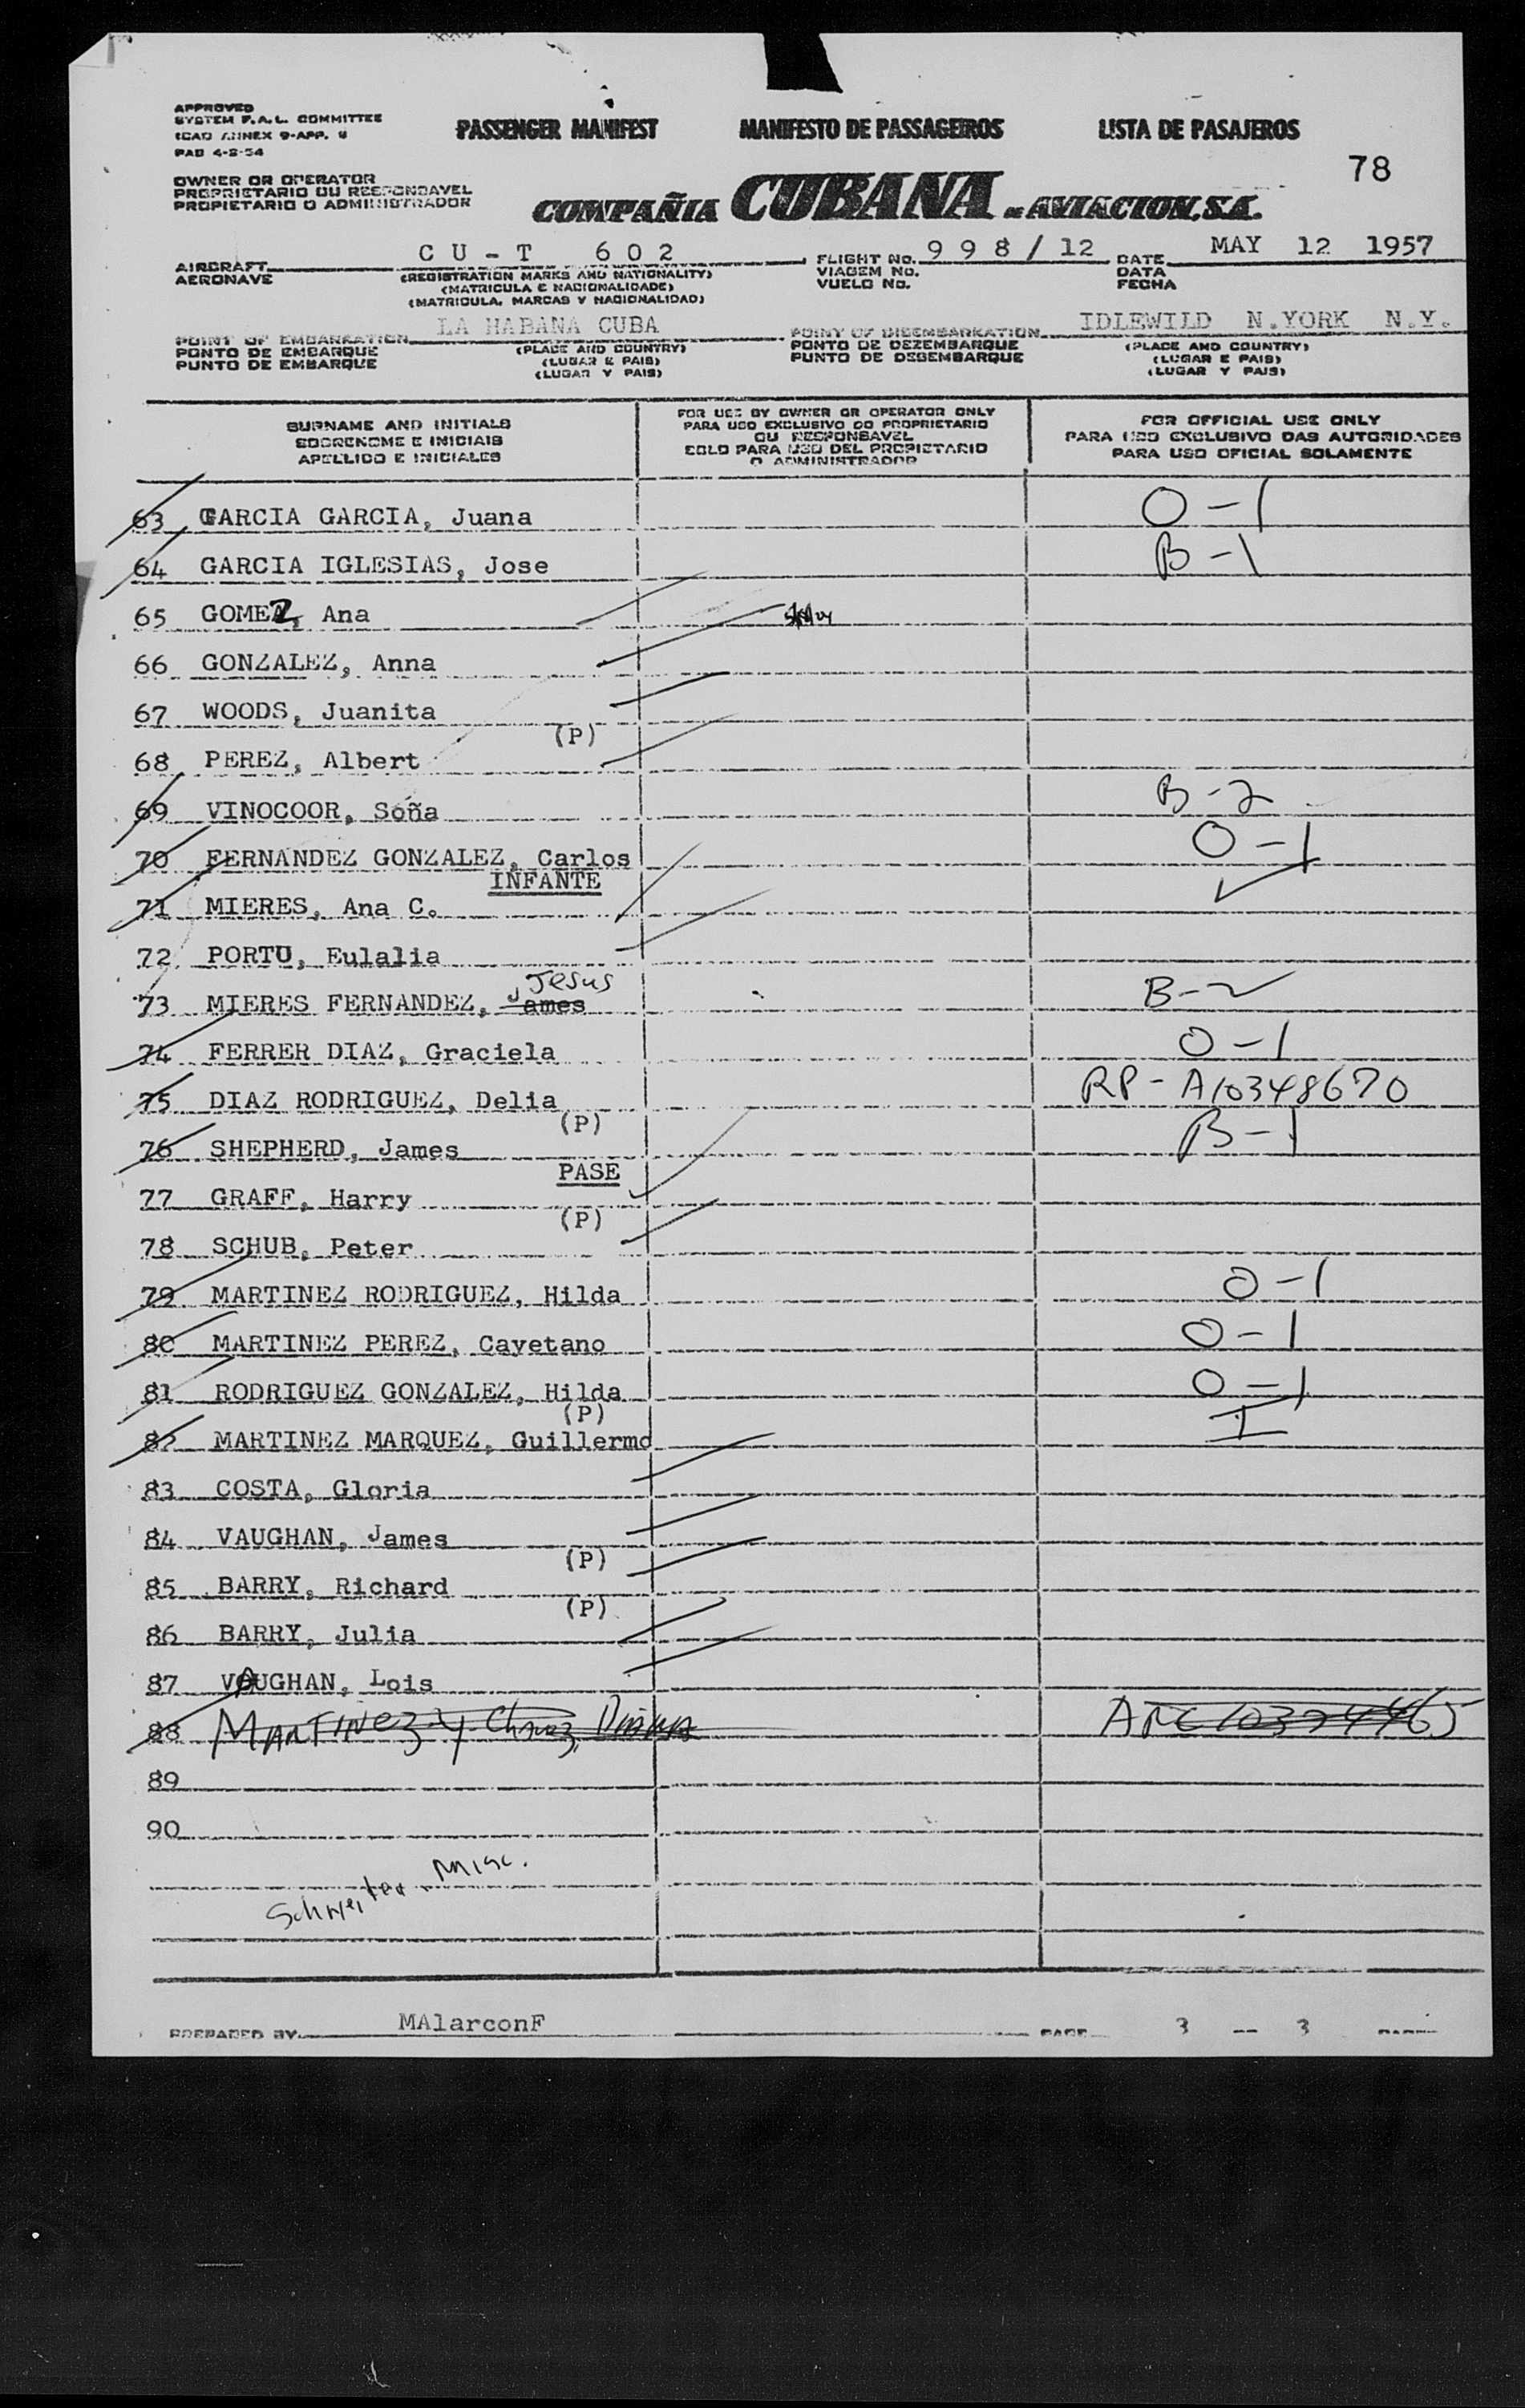 APPROVED
SYSTEM F.A.L. COMMITTEE
ICAO ANNEX 9-APP. 4
PAD 4-2-54
PASSENGER MANIFEST MANIFESTO DE PASSAGEIROS LISTA DE PASAJEROS
78
OWNER OR OPERATOR
PROPRIETARIO OU RESPONSAVEL
PROPIETARIO O ADMINISTRADOR
COMPAÑIA CUBANA DE AVIACION, S.A.
AIRCRAFT CU-T 602 FLIGHT No. 998/12 DATE MAY 12 1957
AERONAVE (REGISTRATION MARKS AND NATIONALITY) VIAGEM No. DATA
(MATRICULA E NACIONALIDADE) VUELO No. FECHA
(MATRICULA, MARCAS Y NACIONALIDAD)
POINT OF EMBARKATION LA HABANA CUBA POINT OF DISEMBARKATION IDLEWILD N.YORK N.Y.
PONTO DE EMBARQUE (PLACE AND COUNTRY) PONTO DE DEZEMBARQUE (PLACE AND COUNTRY)
PUNTO DE EMBARQUE (LUGAR E PAIS) PUNTO DE DESEMBARQUE (LUGAR E PAIS)
(LUGAR Y PAIS) (LUGAR Y PAIS)
SURNAME AND INITIALS
SOBRENOME E INICIAIS
APELLIDO E INICIALES
FOR USE BY OWNER OR OPERATOR ONLY
PARA USO EXCLUSIVO DO PROPRIETARIO
OU RESPONSAVEL
SOLO PARA USO DEL PROPIETARIO
O ADMINISTRADOR
FOR OFFICIAL USE ONLY
PARA USO EXCLUSIVO DAS AUTORIDADES
PARA USO OFICIAL SOLAMENTE
63 GARCIA GARCIA, Juana O-1
64 GARCIA IGLESIAS, Jose B-1
65 GOMEZ, Ana
66 GONZALEZ, Anna
67 WOODS, Juanita
(P)
68 PEREZ, Albert
69 VINOCOOR, Soña B-2
70 FERNANDEZ GONZALEZ, Carlos O-1
INFANTE
71 MIERES, Ana C.
72 PORTU, Eulalia
Jesus
73 MIERES FERNANDEZ, James B-2
74 FERRER DIAZ, Graciela O-1
75 DIAZ RODRIGUEZ, Delia RP-A10348670
(P)
76 SHEPHERD, James B-1
PASE
77 GRAFF, Harry
(P)
78 SCHUB, Peter
79 MARTINEZ RODRIGUEZ, Hilda O-1
80 MARTINEZ PEREZ, Cayetano O-1
81 RODRIGUEZ GONZALEZ, Hilda O-1
(P)
82 MARTINEZ MARQUEZ, Guillermo I
83 COSTA, Gloria
84 VAUGHAN, James
(P)
85 BARRY, Richard
(P)
86 BARRY, Julia
87 VAUGHAN, Lois
88 MARTINEZ y
89
90
Misc.
PREPARED BY MAlarconF PAGE 3 -- 3 PAGES